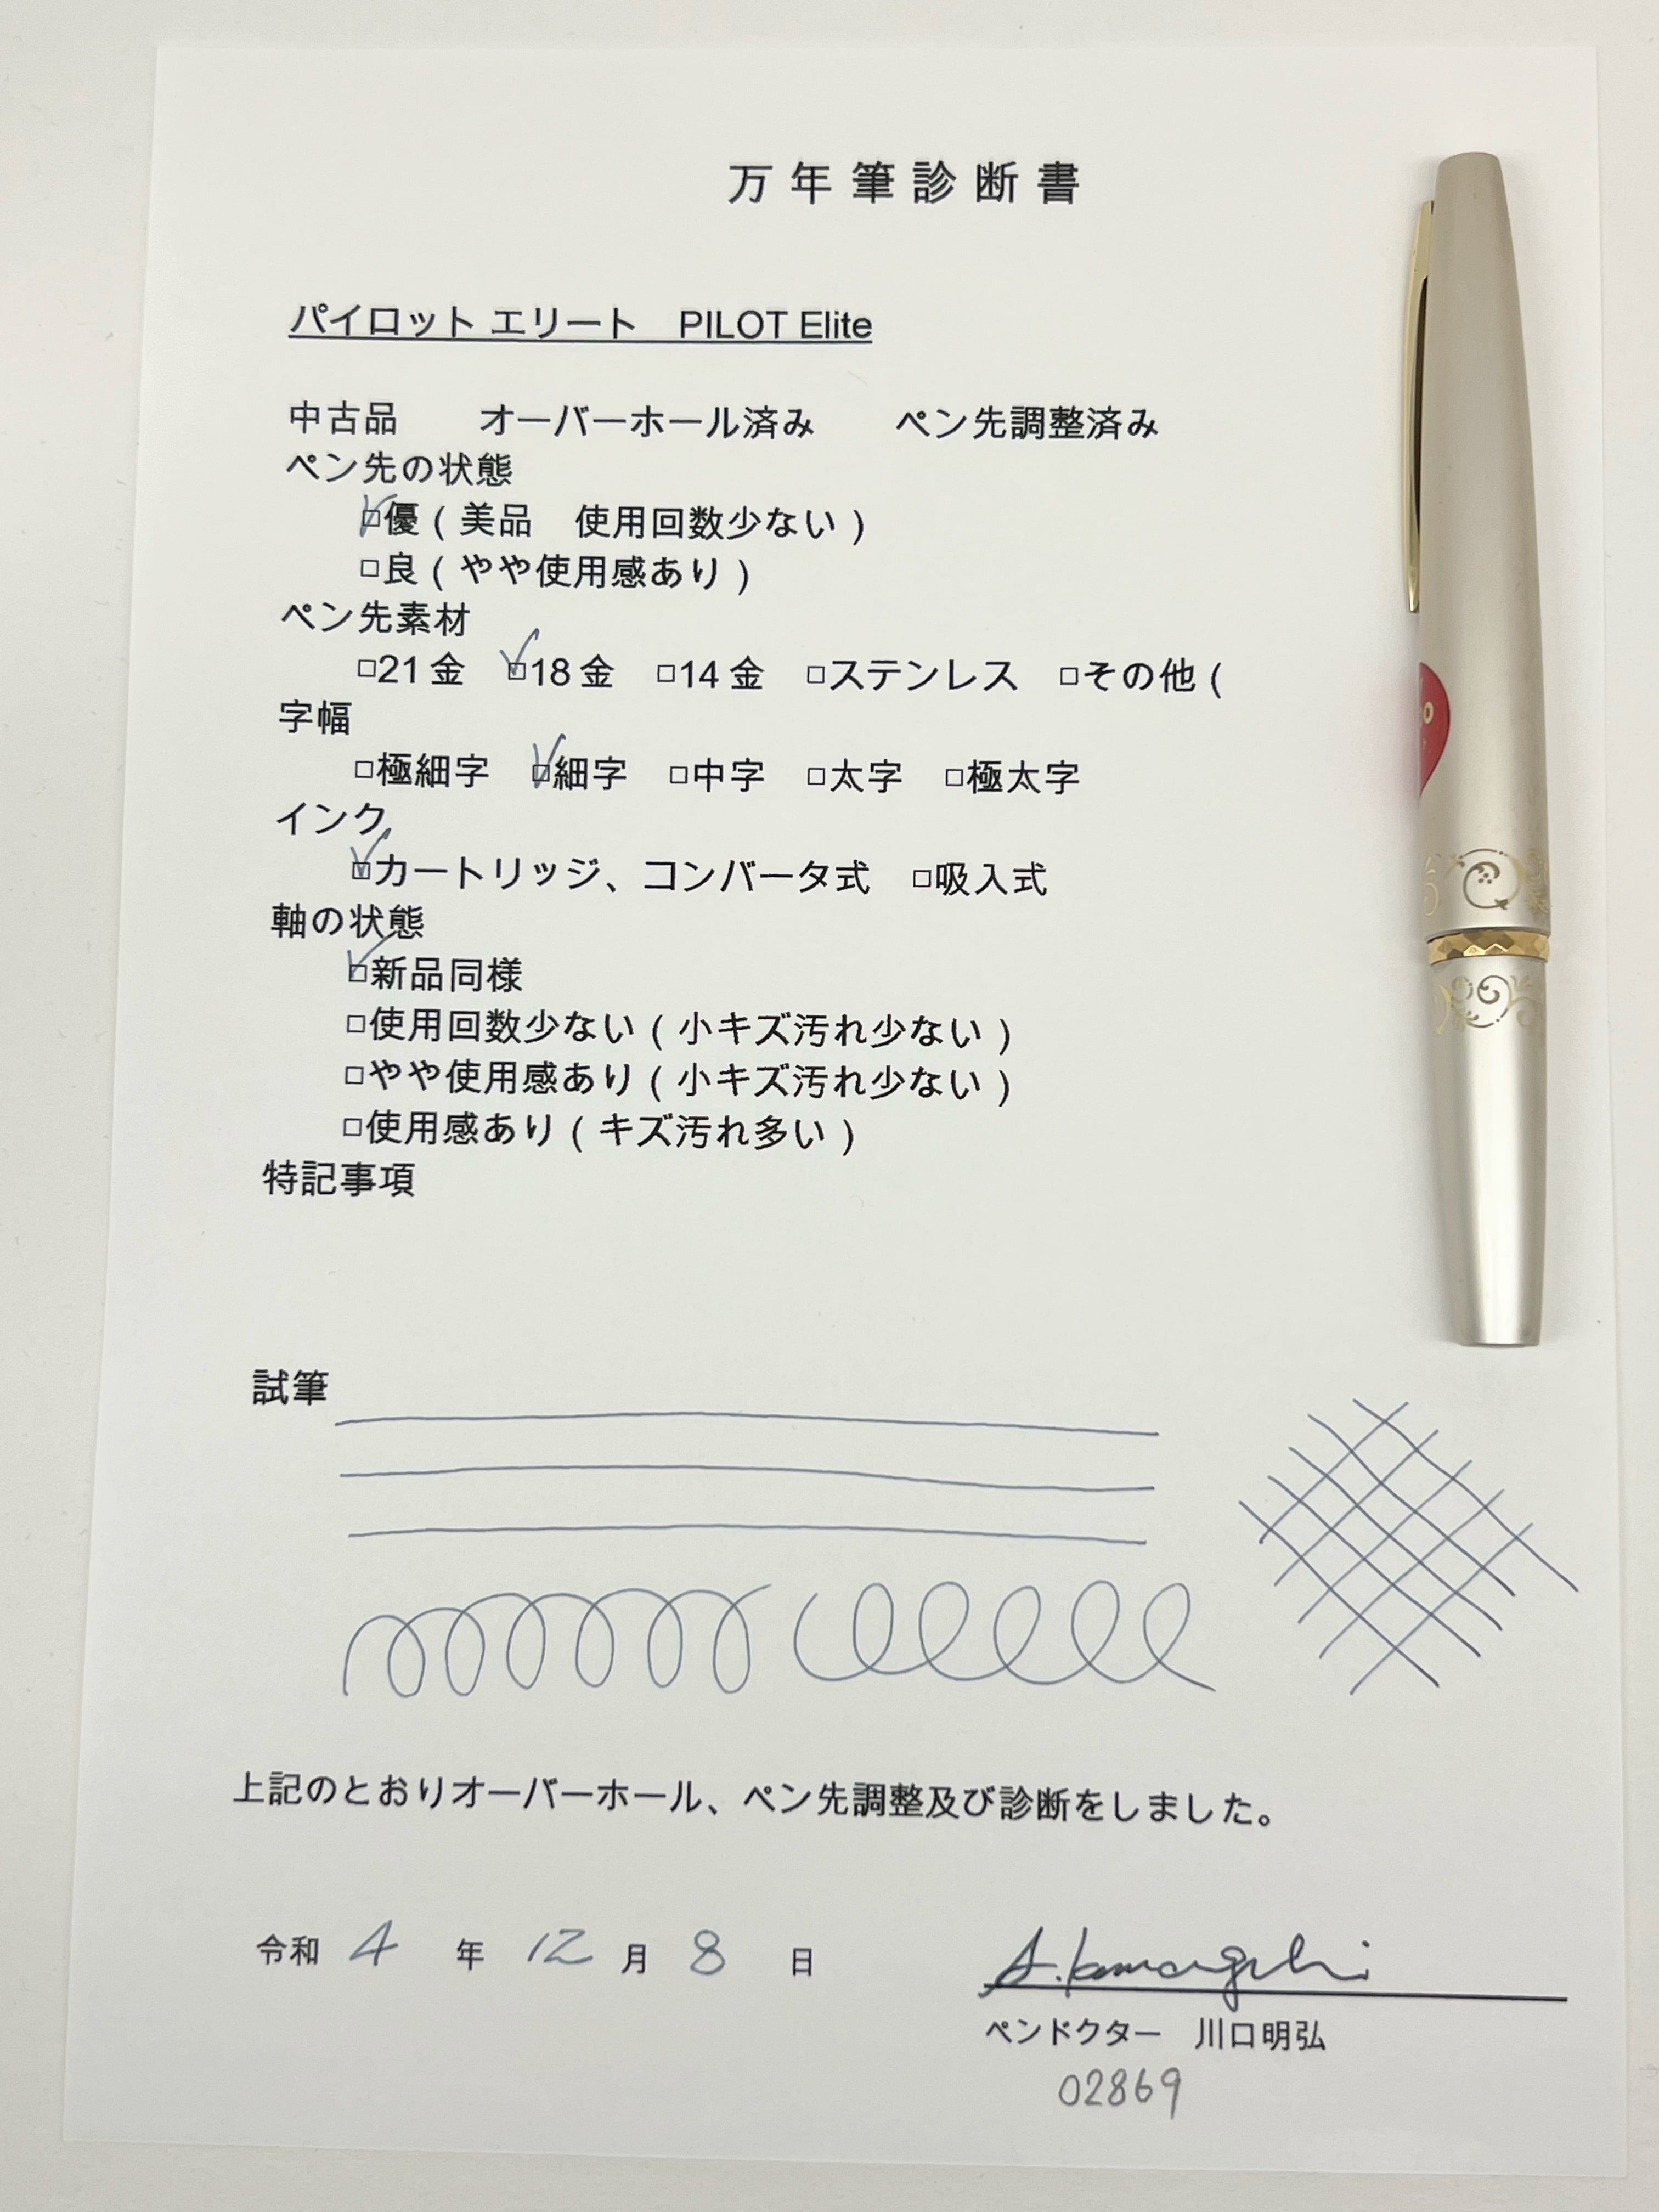 万年筆診断書
パイロット エリート　PILOT Elite
中古品　　オーバーホール済み　　ペン先調整済み
ペン先の状態
☑優（美品　使用回数少ない）
□良（やや使用感あり）
ペン先素材
□21金　☑18金　□14金　□ステンレス　□その他（
字幅
□極細字　☑細字　□中字　□太字　□極太字
インク
☑カートリッジ、コンバータ式　□吸入式
軸の状態
☑新品同様
□使用回数少ない（小キズ汚れ少ない）
□やや使用感あり（小キズ汚れ少ない）
□使用感あり（キズ汚れ多い）
特記事項
試筆
上記のとおりオーバーホール、ペン先調整及び診断をしました。
令和 4 年 12 月 8 日
ペンドクター　川口明弘
02869